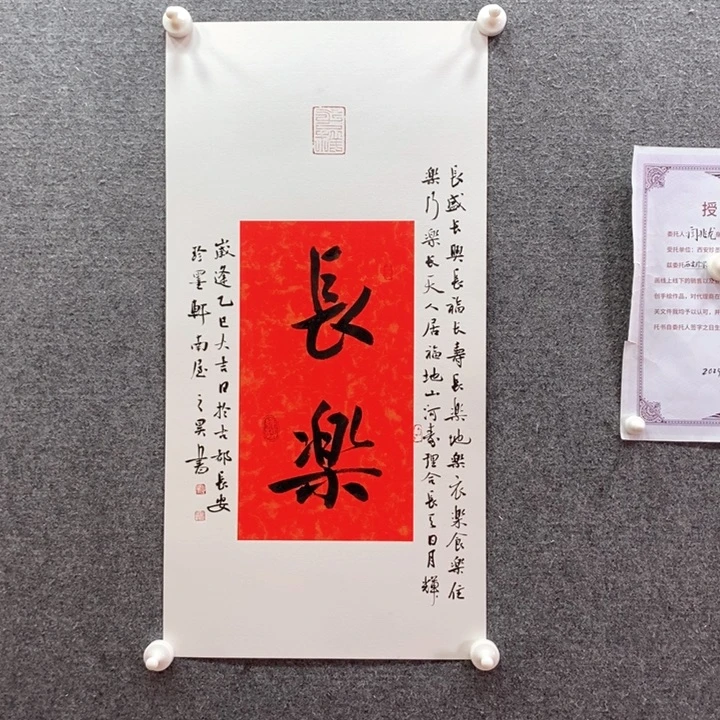 長樂
長盛長興長福長壽長樂地樂衣樂食樂住
樂行樂長天人居福地山河壽理合長天日月輝
歲逢乙巳大吉日於古都長安
珍墨軒南屋之昊書
授
委托人
受托单位：西安珍墨
兹委托
画线上线下的销售以及
创手绘作品，对代理商在
关文件我均予以认可，并
托书自委托人签字之日生